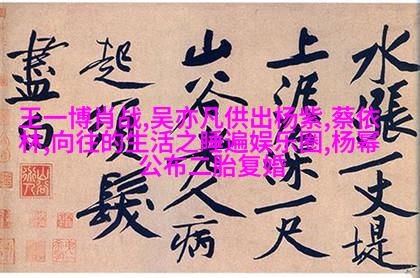 王一博肖战,吴亦凡供出杨紫,蔡依
林,向往的生活之睡遍娱乐圈,杨幂
公布二胎复婚
水漲一丈堤
上泥深一尺
山谷老人病
起須髮
盡白